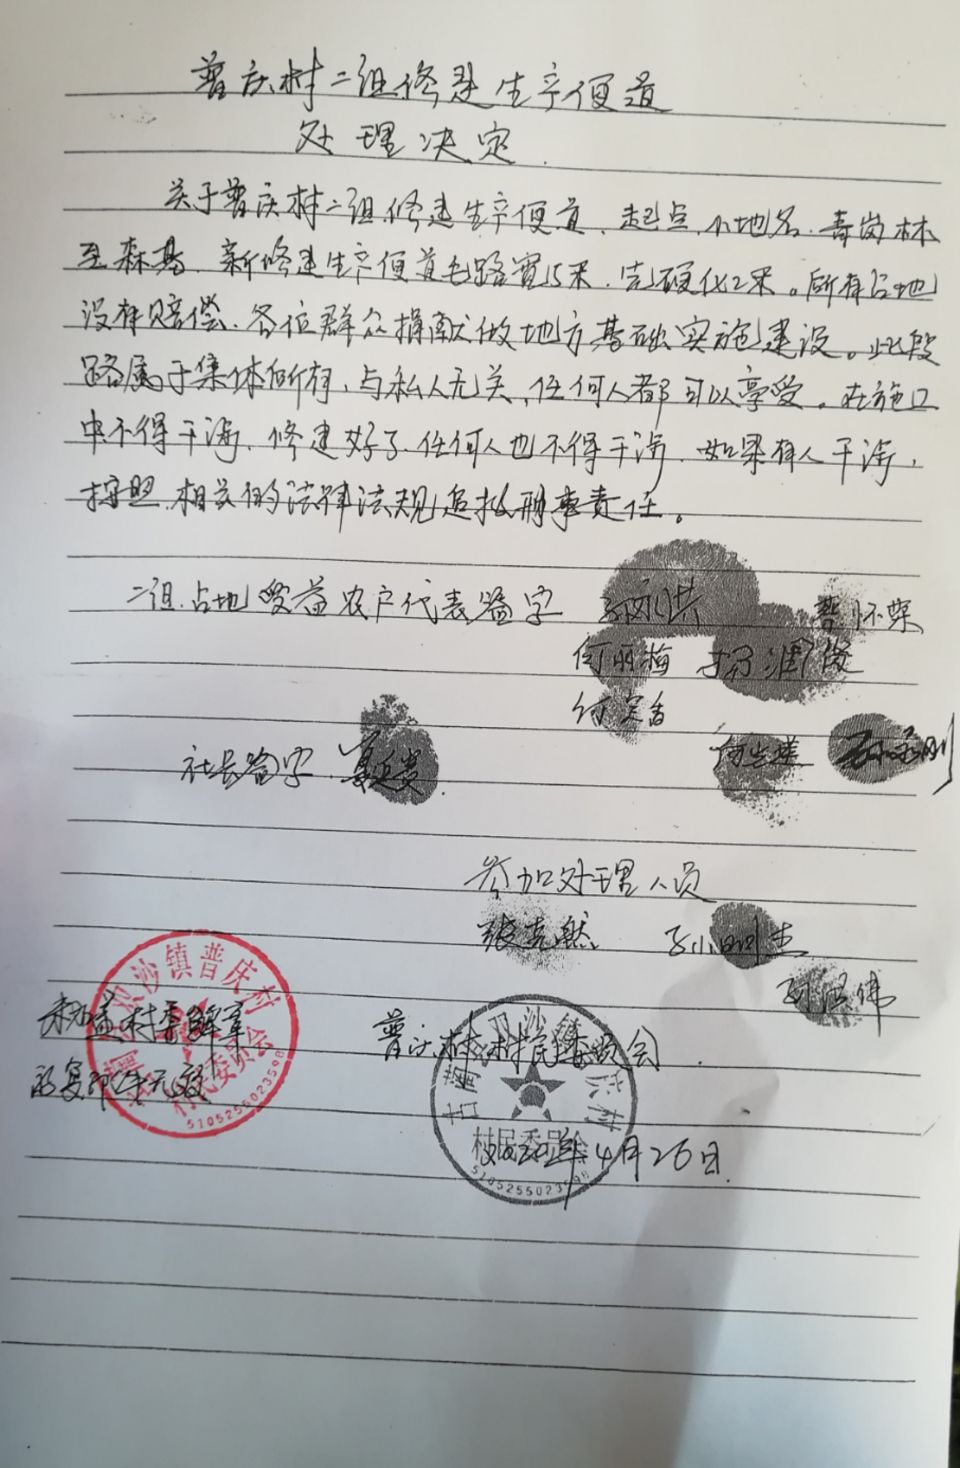 普庆村二组修建生产便道
处理决定
关于普庆村二组修建生产便道、起点、小地名、青岗林
至森基、新修建生产便道毛路宽15米、完硬化2米。所有占地
没有赔偿、各位群众捐献做地方基础实施建设。此段
路属于集体所有、与私人无关、任何人都可以享受。在施工
中不得干涉、修建好了、任何人也不得干涉、如果有人干涉、
按照、相关的法律法规追报刑事责任。
二组、占地受益农户代表签字
何丽梅
社长签字
参加处理人员
张克然
普庆村村民委员会
未加盖村委鲜章
的复印件无效
双沙镇普庆村
村民委员会
5105255023598
古蔺 双沙镇 庆村
村民委员会
5105255023598
年4月26日